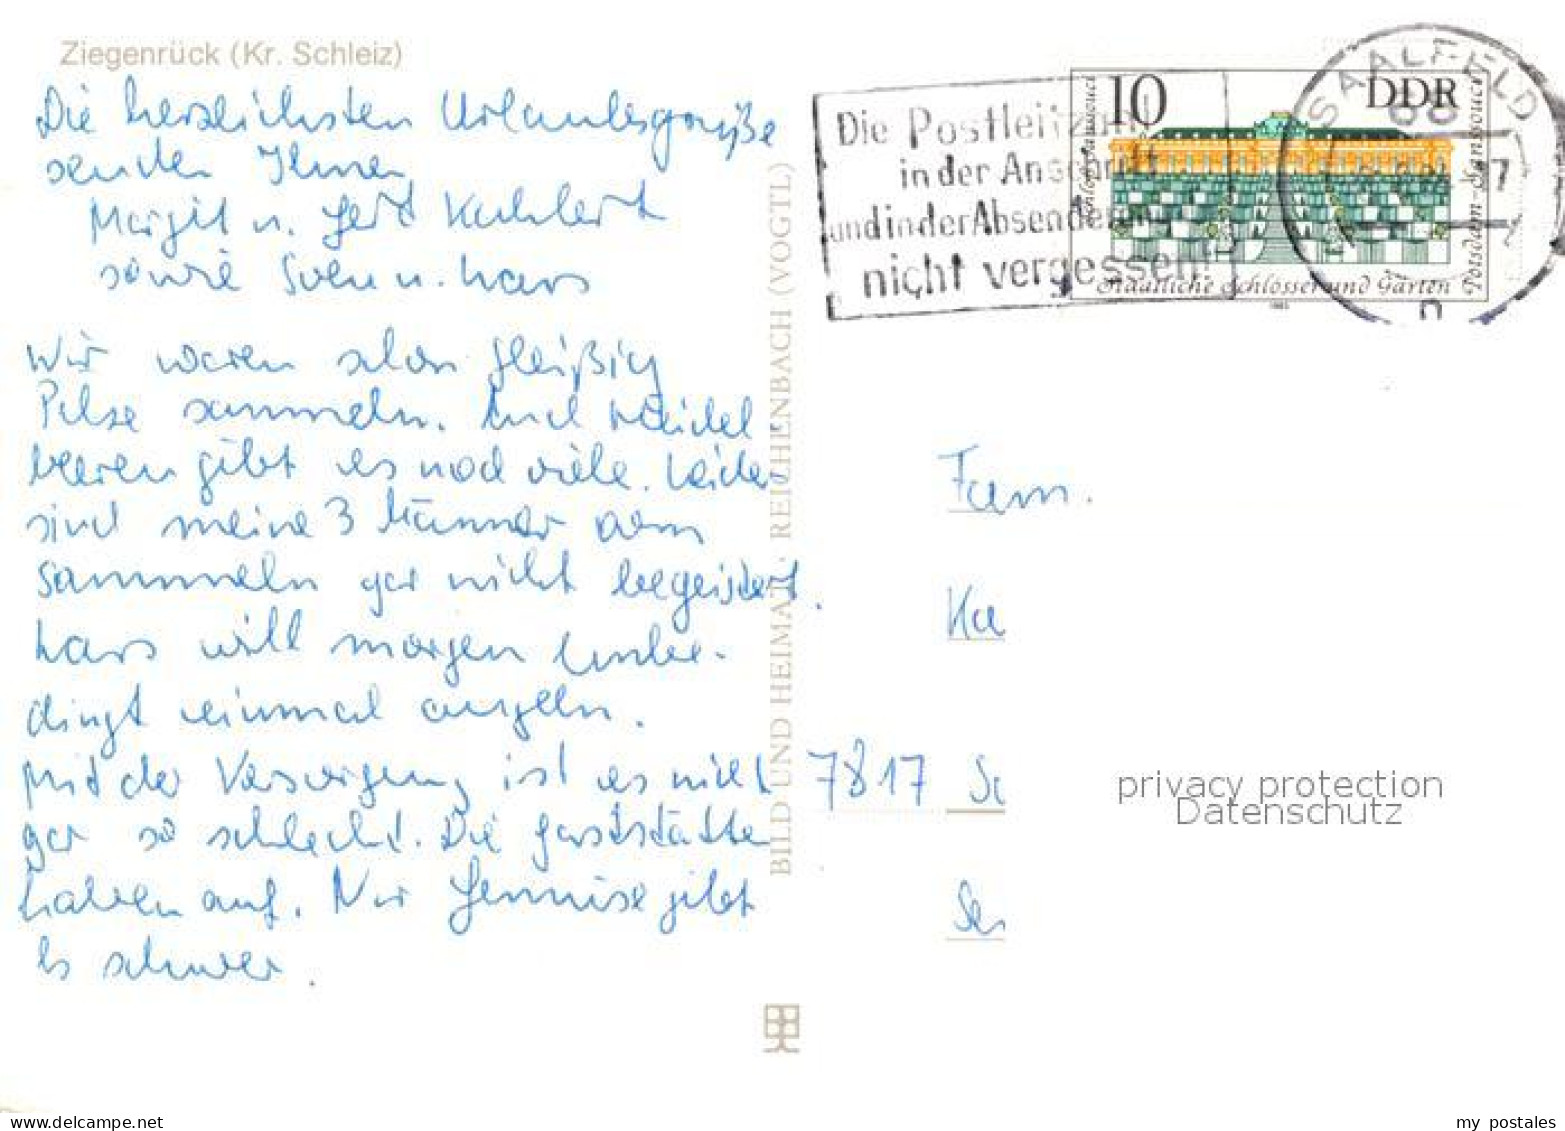 Ziegenrück (Kr. Schleiz)
Die herzlichsten Urlaubsgrüße
senden Ihnen
Margit u. Gert Kahlert
sowie Sven u. Lars
Wir waren schon fleißig
Pilze sammeln. Auch Heidel-
beeren gibt es noch viele. Leider
sind meine 3 Männer vom
Sammeln gar nicht begeistert.
Lars will morgen unbe-
dingt einmal angeln.
Mit der Versorgung ist es nicht
gar so schlecht. Die Gaststätten
haben auf. Nur Gemüse gibt
es schwer.
BILD UND HEIMAT · REICHENBACH (VOGTL)
Die Postleitzahl
in der Anschrift
und in der Absenderangabe
nicht vergessen!
10 DDR
Schloß Sanssouci
Potsdam-Sanssouci
Staatliche Schlösser und Gärten
SAALFELD
Fam.
Ka
7817 Sc
Se
privacy protection
Datenschutz
www.delcampe.net
my postales